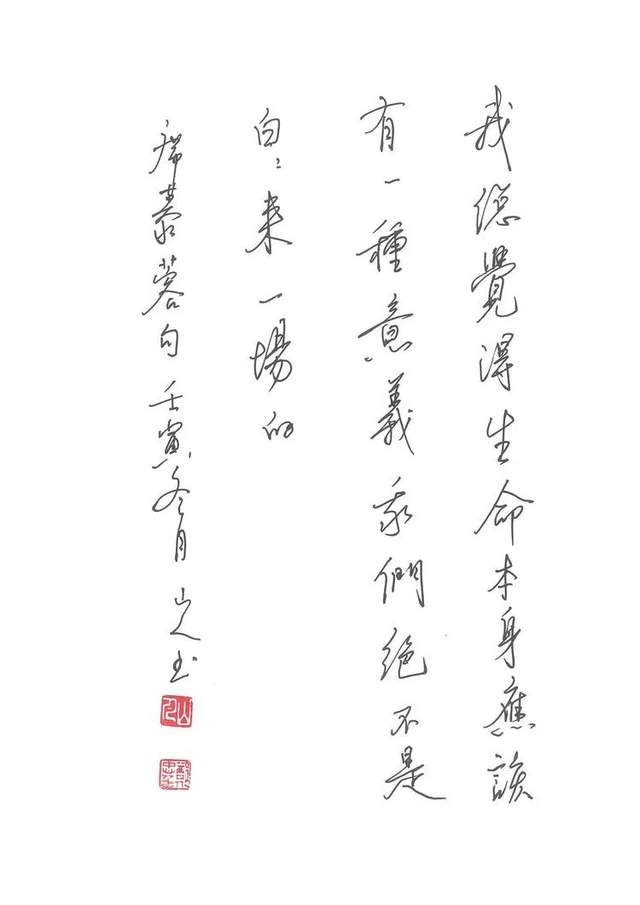 我總覺得生命本身應該
有一種意義我們絕不是
白〻來一場的
席慕蓉句壬寅冬月山人书
山人